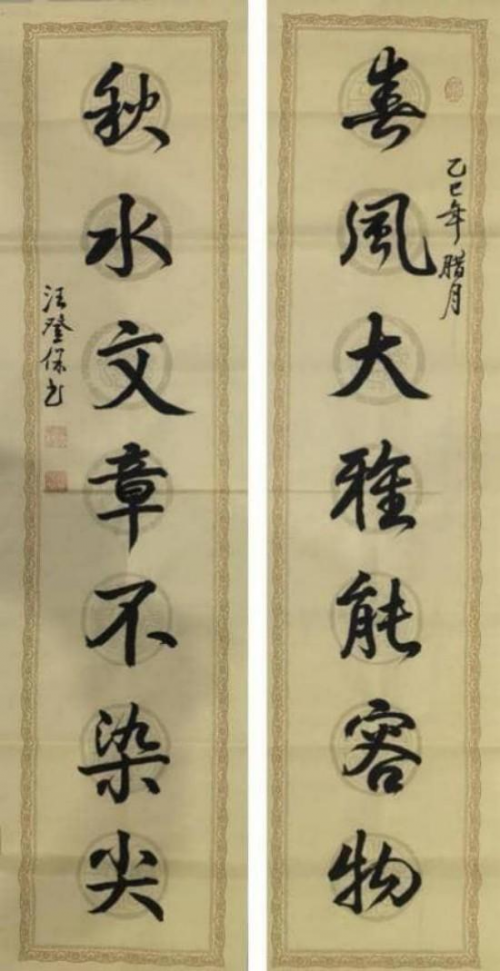 乙巳年腊月
春風大雅能容物
秋水文章不染尖
汪登保书